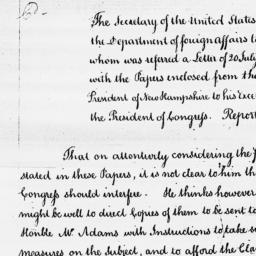 The Secretary of the United States
the Department of foreign affairs to
whom was referred a Letter of 20 July
with the Papers enclosed from the
President of New Hampshire to his Exce
the President of Congress. Report
That on attentively considering the
stated in these Papers, it is not clear to him th
Congress should interfere. He thinks however
might be well to direct Copies of them to be sent to
Honble Mr Adams with Instructions to take s
measures on the Subject, and to afford the Cla